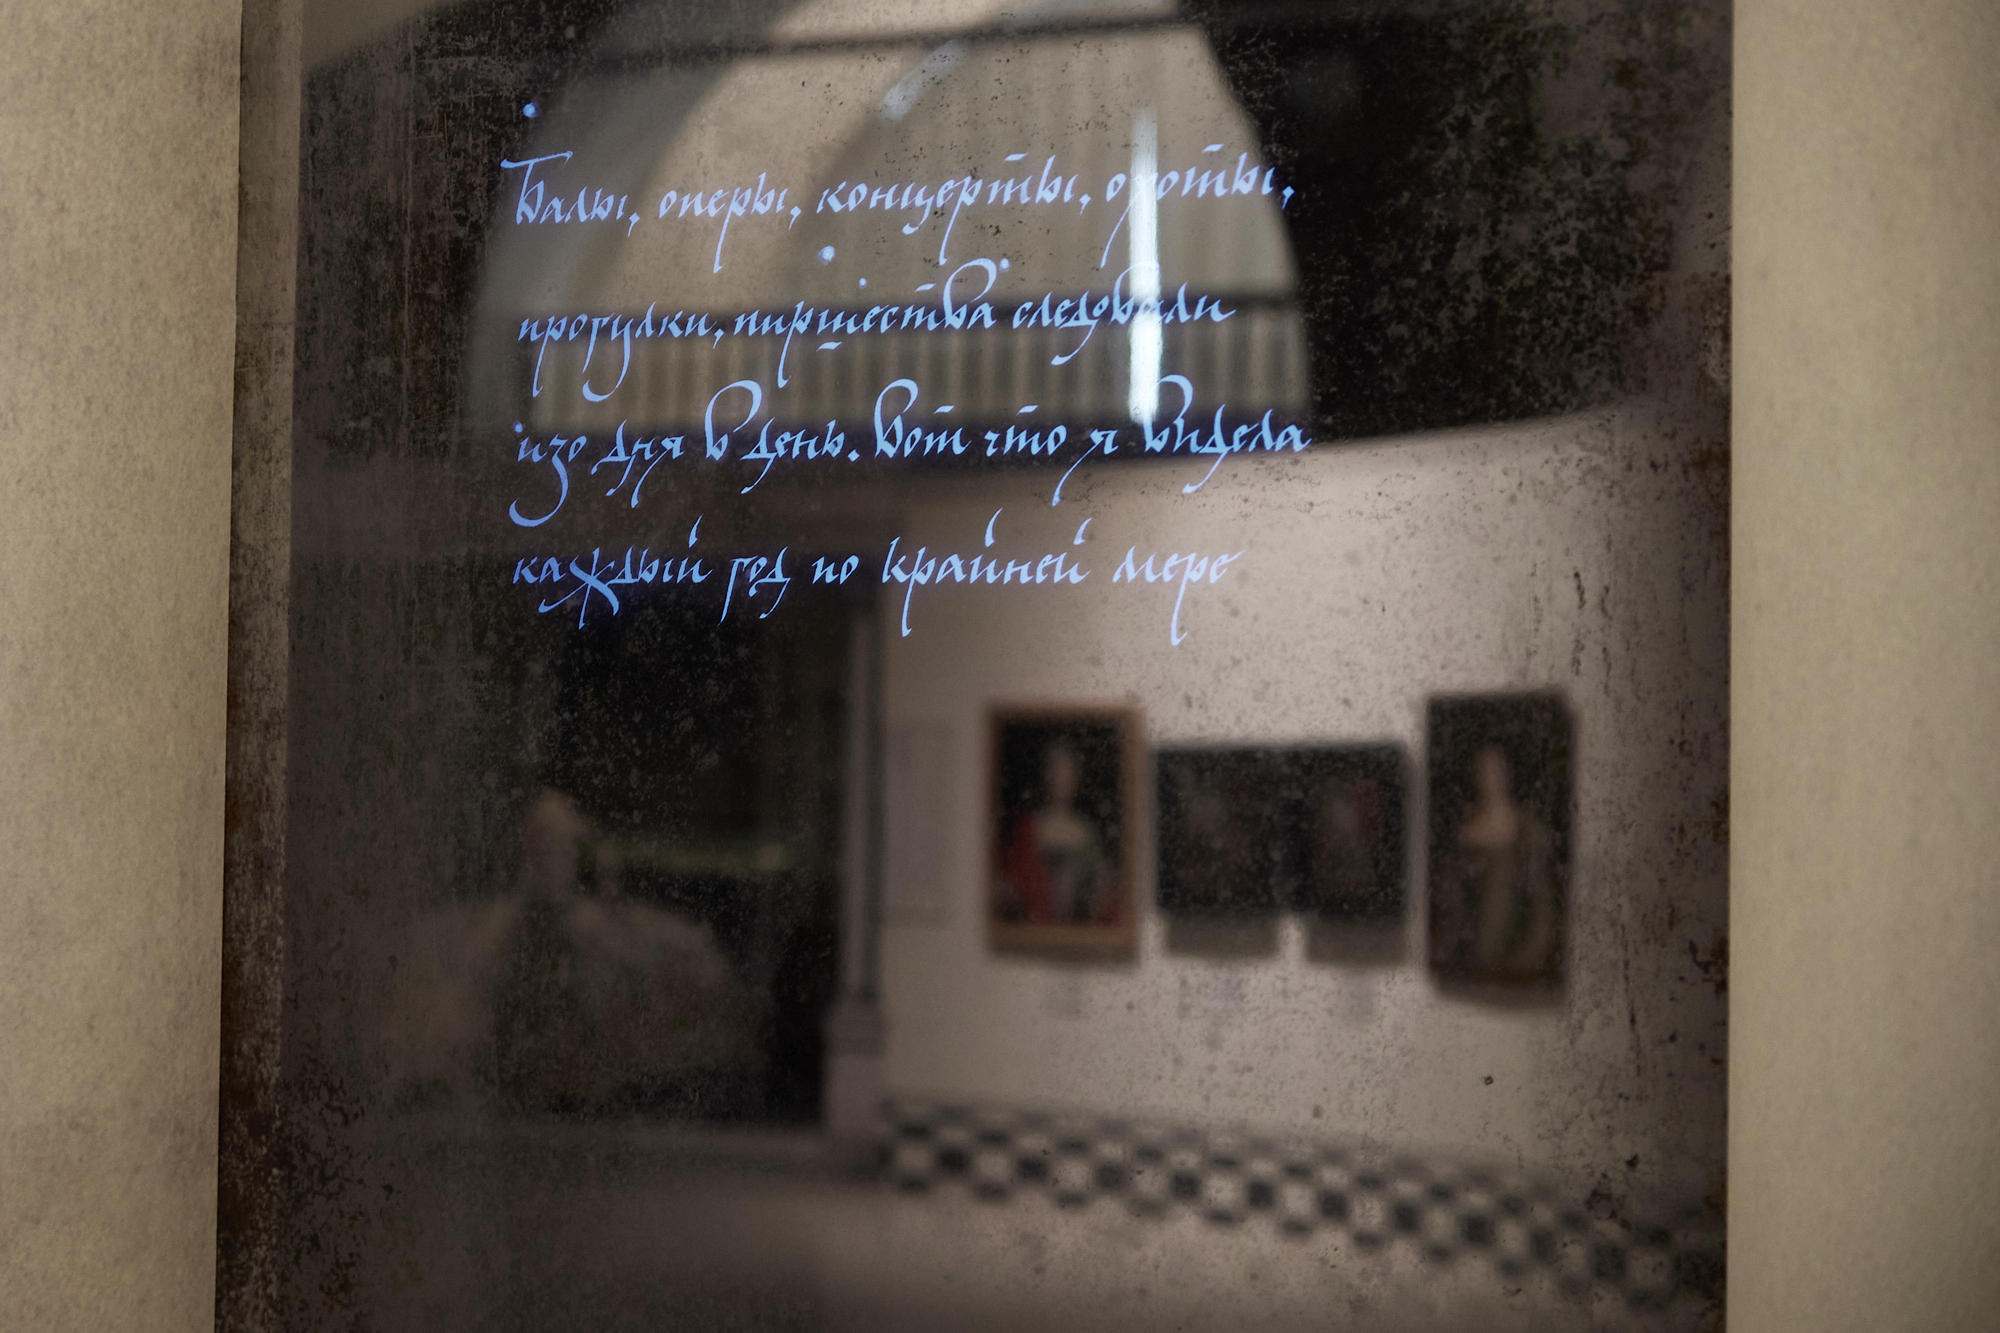 Балы, оперы, концерты, охоты,
прогулки, пиршества следовали
изо дня в день. Вот что я видела
каждый год по крайней мере